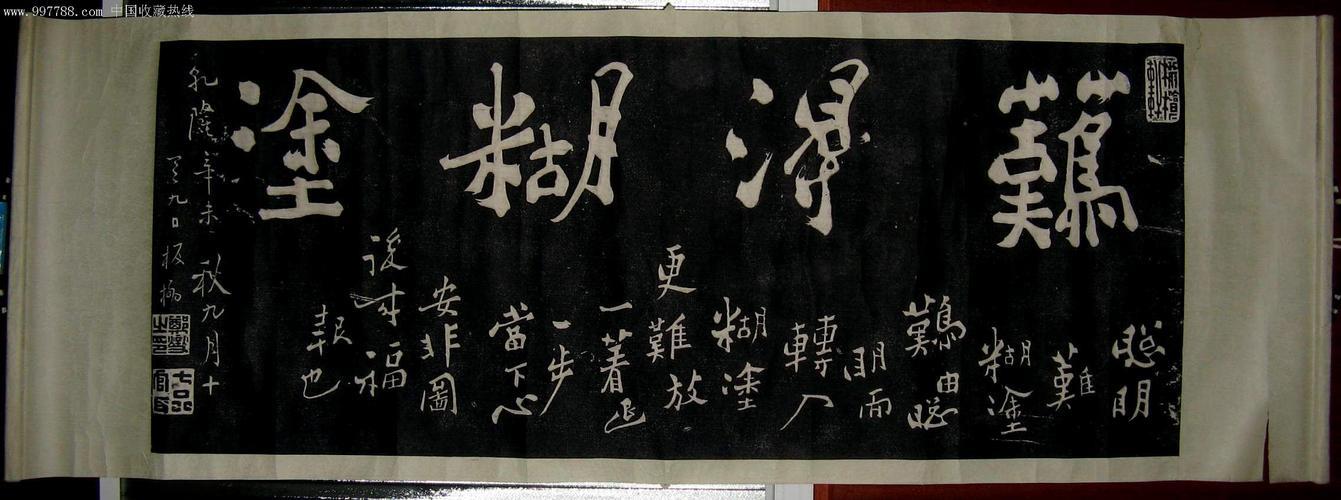 www.997788.com 中国收藏热线
難得糊塗
聰明
難
糊塗
難由聰
明而
轉入
糊塗
更難放
一著退
一步
當下心
安非圖
後来福
報也
乾隆辛未秋九月十
有九日板橋
鄭燮之印
七品官耳